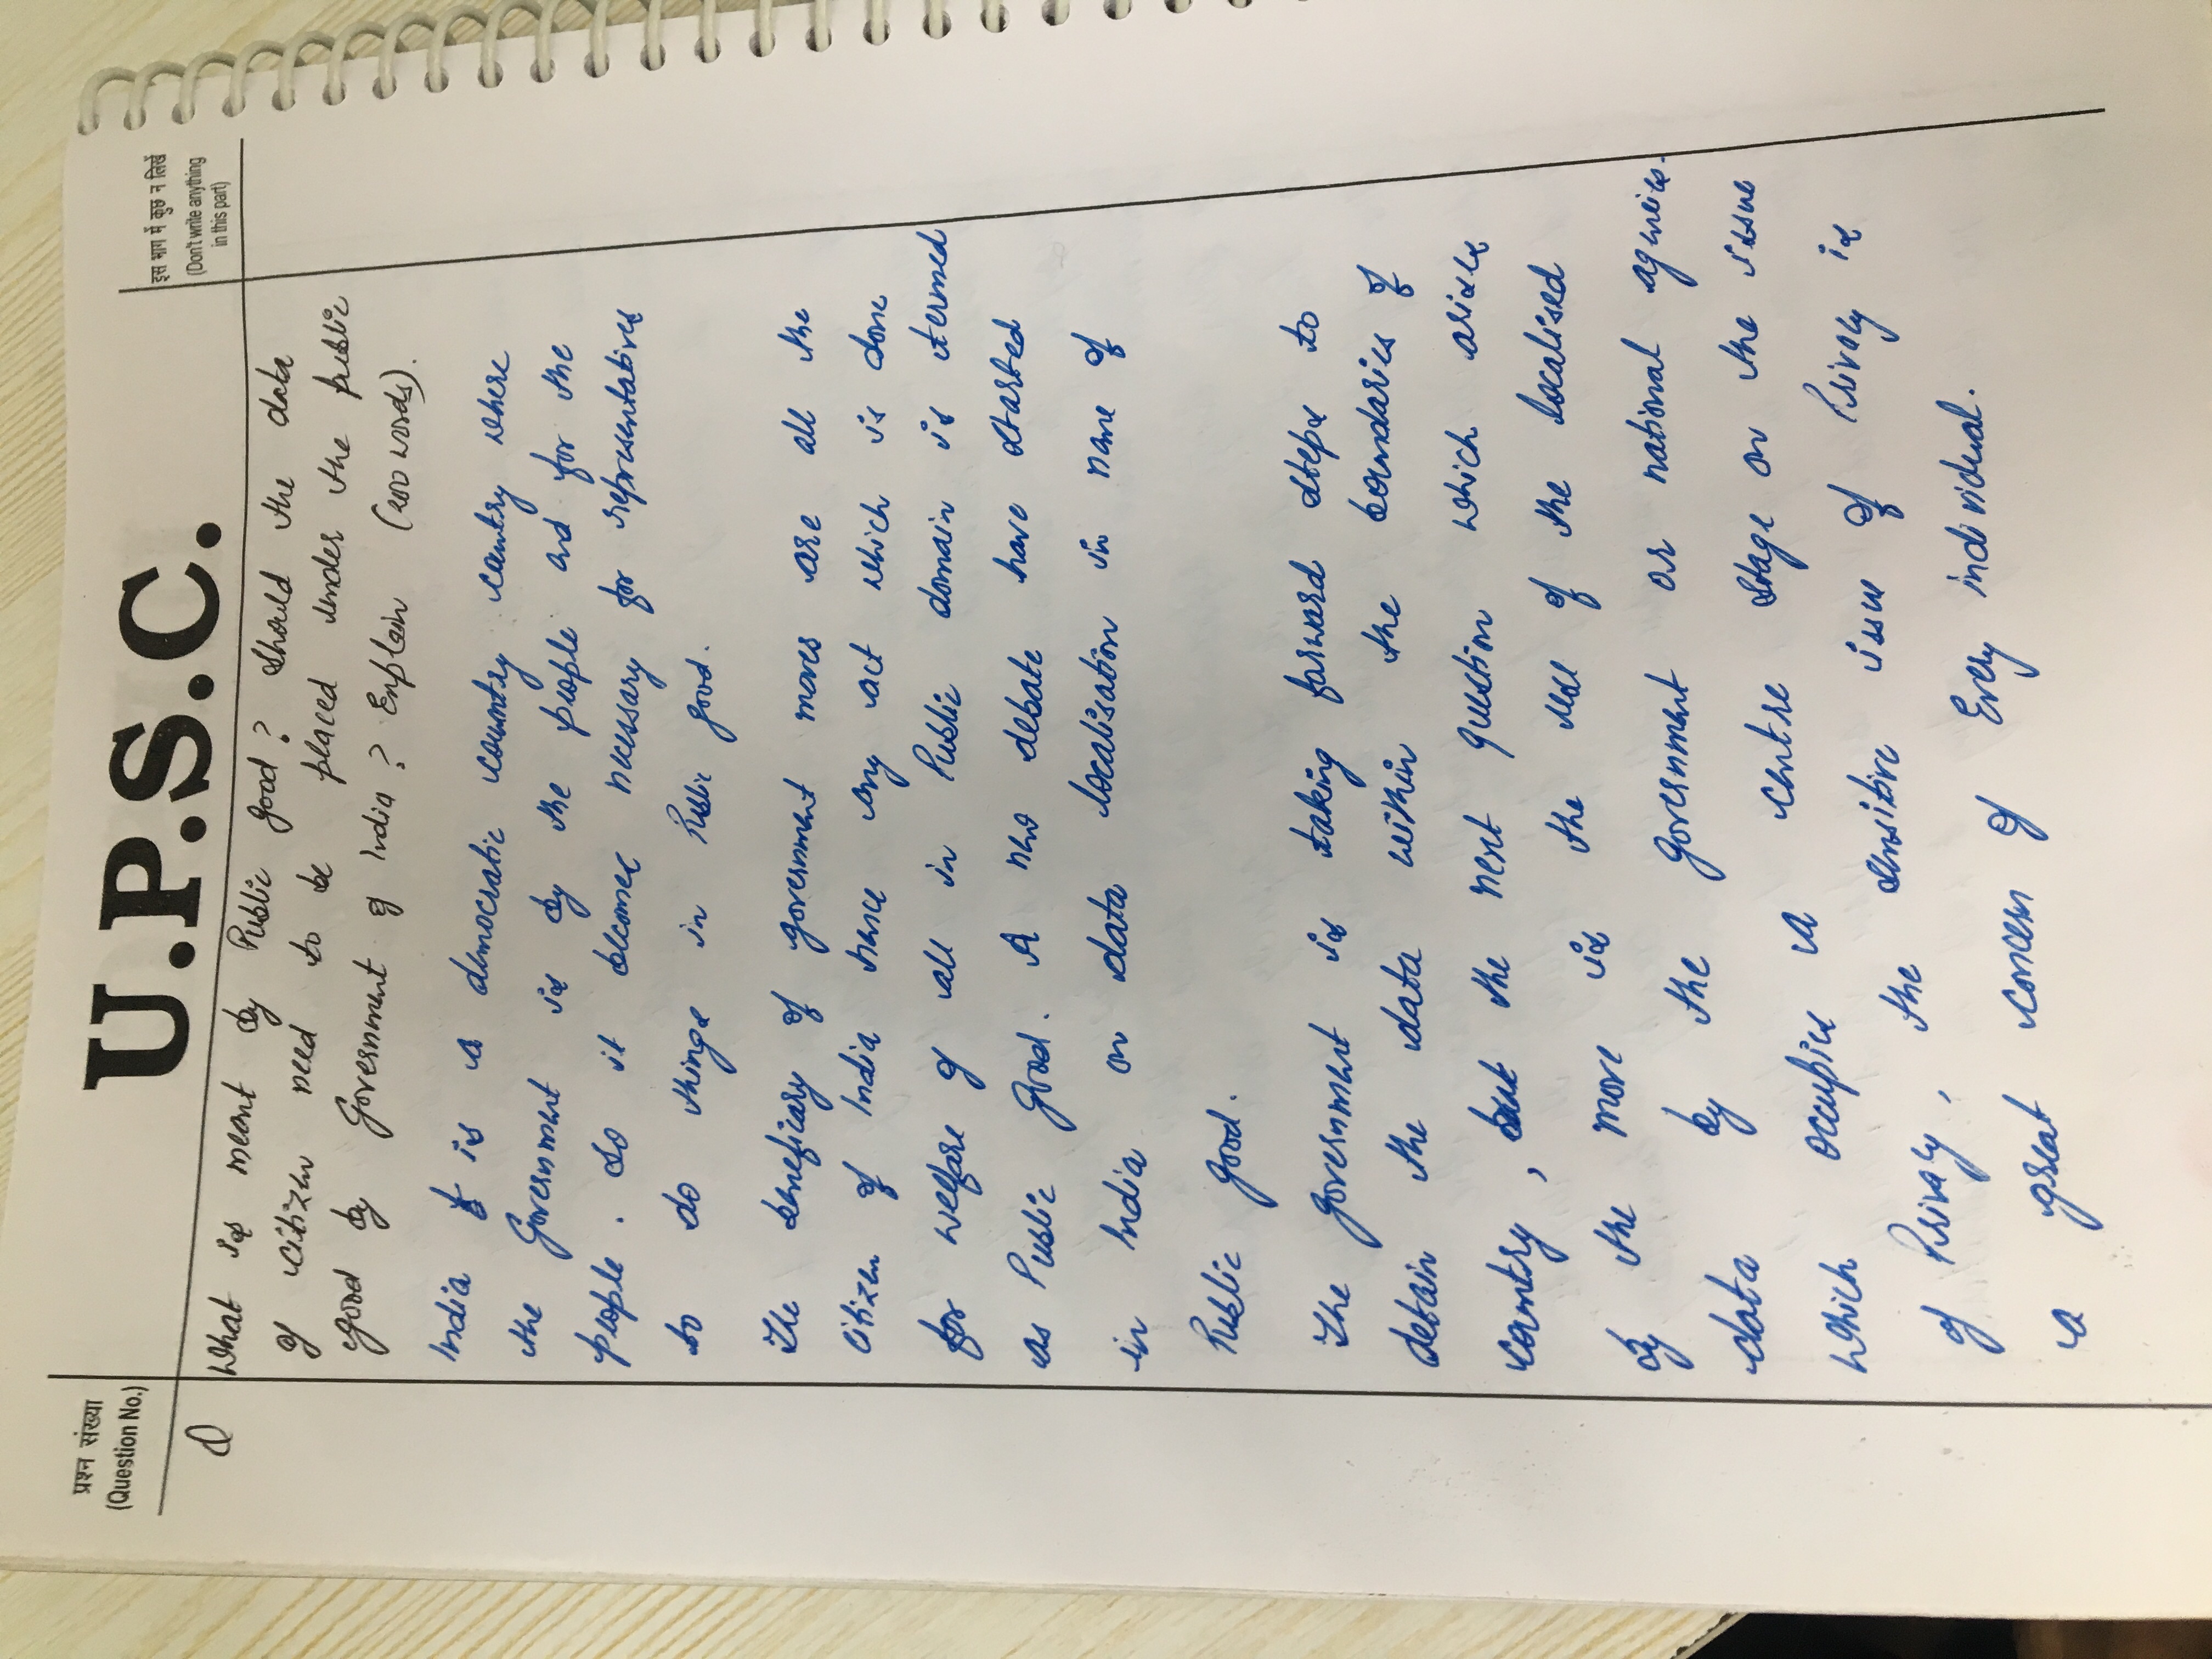 U.P.S.C.
प्रश्न संख्या
(Question No.)
इस भाग में कुछ न लिखें
(Don't write anything
in this part)
Q
What is meant by Public good? Should the data
of citizen need to be placed under the public
good by Government of India? Explain (200 words).
India is a democratic country country where
the Government is by the people and for the
people. So it becomes necessary for representatives
to do things in Public good.
The beneficiary of government moves are all the
citizen of India hence any act which is done
for welfare of all in Public domain is termed
as Public Good. A new debate have started
in India on data localisation in name of
Public Good.
The Government is taking forward steps to
detain the data within the boundaries of
country, but the next question which arises
by the more is the use of the localised
data by the Government or national agencies.
which occupies a centre stage on the issue
of Privacy, the sensitive issue of Privacy is
a great concern of Every individual.